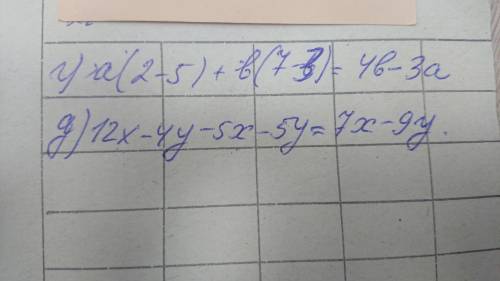 г) a(2-5) + b(7-3) = 4b-3a
д) 12x-4y-5x-5y = 7x-9y.